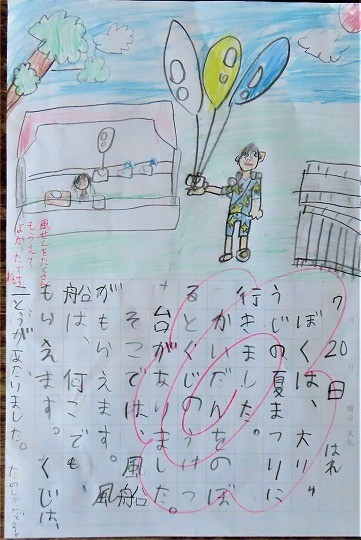 7 20日 はれ
ぼくは、大りゅ
うじの夏まつりに
行きました。
かいだんをのぼ
るとくじのうけつ
け台がありました。
そこでは、風船
がもらえます。風
船は、何こでも、
もらえます。くじは、
二とうがあたりました。
風せんをたくさん
もらえて
よかったですね